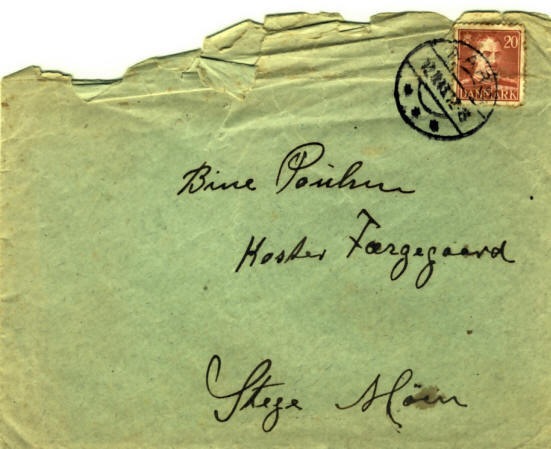 20
DANMARK
Bine Poulsen
Koster Færgegaard
Stege Møen